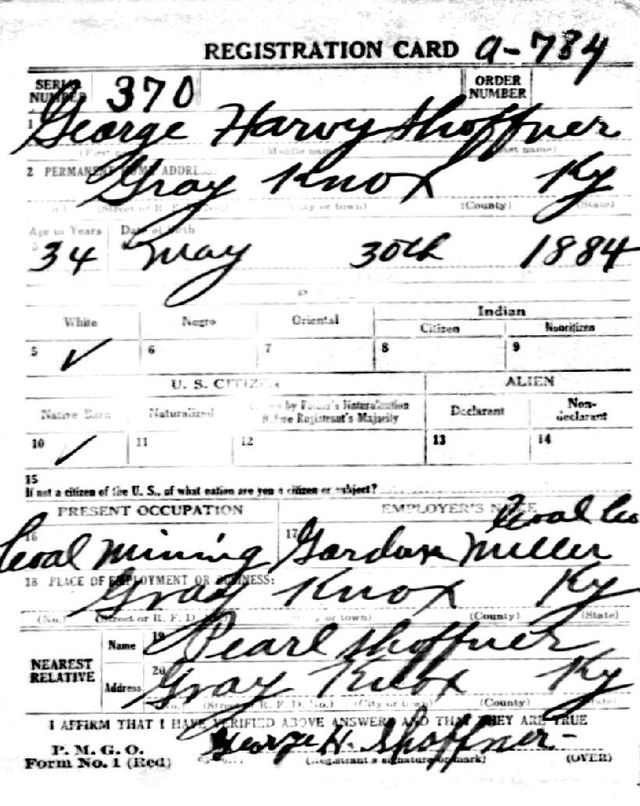 REGISTRATION CARD a-784
SERIAL NUMBER 370 ORDER NUMBER
1 George Harvy Shoffner
(First name) (Middle name) (Last name)
2 PERMANENT HOME ADDRESS:
Gray Knox Ky
(No.) (Street or R. F. D. No.) (City or town) (County) (State)
Age in Years Date of Birth
34 May 30th 1884
White Negro Oriental Indian
Citizen Noncitizen
5 ✓ 6 7 8 9
U. S. CITIZEN ALIEN
Native Born Naturalized by Father's Naturalization Before Registrant's Majority Declarant Non-declarant
10 ✓ 11 12 13 14
15
If not a citizen of the U. S., of what nation are you a citizen or subject?
PRESENT OCCUPATION EMPLOYER'S NAME
16 Coal Mining 17 Miller Coal Co
18 PLACE OF EMPLOYMENT OR BUSINESS:
Gray Knox Ky
(No.) (Street or R. F. D. No.) (City or town) (County) (State)
NEAREST RELATIVE
Name 19 Pearl Shoffner
Address 20 Gray Knox Ky
(No.) (Street or R. F. D. No.) (City or town) (County) (State)
I AFFIRM THAT I HAVE VERIFIED ABOVE ANSWERS AND THAT THEY ARE TRUE
P. M. G. O.
Form No. 1 (Red) George H. Shoffner
(Registrant's signature or mark) (OVER)